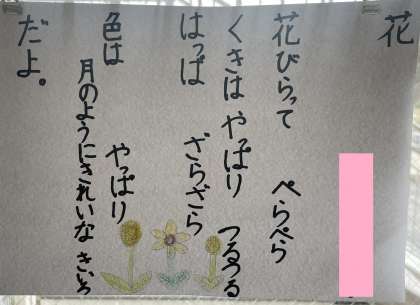 花
花びらって ぺらぺら
くきは やっぱり つるつる
はっぱ ざらざら
色は やっぱり
月のようにきれいな きいろ
だよ。